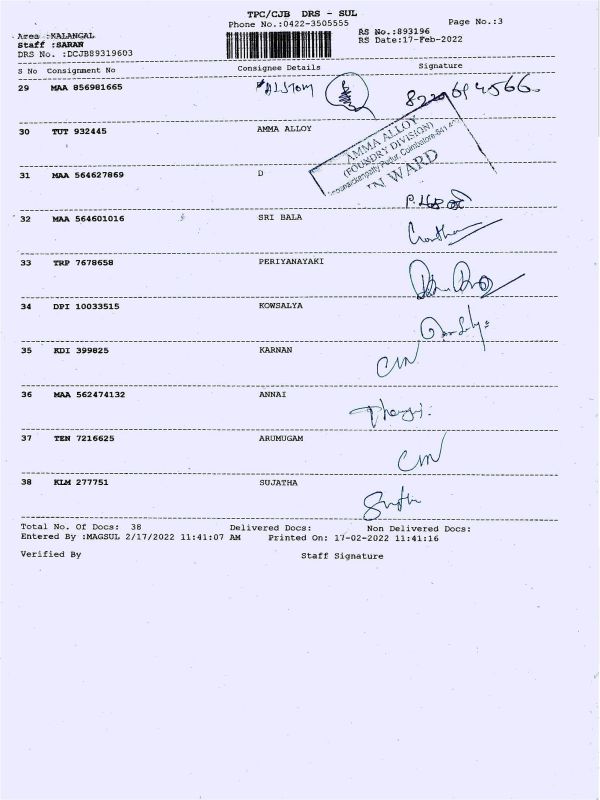 TPC/CJB DRS - SUL
Phone No.:0422-3505555
Page No.:3
Area :KALANGAL
Staff :SARAN
DRS No. :DCJB89319603
RS No.:893196
RS Date:17-Feb-2022
S No Consignment No Consignee Details Signature
29 MAA 856981665 ALSTOM
30 TUT 932445 AMMA ALLOY
AMMA ALLOY
(FOUNDRY DIVISION)
IN WARD
31 MAA 564627869 D
32 MAA 564601016 SRI BALA
33 TRP 7678658 PERIYANAYAKI
34 DPI 10033515 KOWSALYA
35 KDI 399825 KARNAN
36 MAA 562474132 ANNAI
37 TEN 7216625 ARUMUGAM
38 KLM 277751 SUJATHA
Total No. Of Docs: 38 Delivered Docs: Non Delivered Docs:
Entered By :MAGSUL 2/17/2022 11:41:07 AM Printed On: 17-02-2022 11:41:16
Verified By Staff Signature